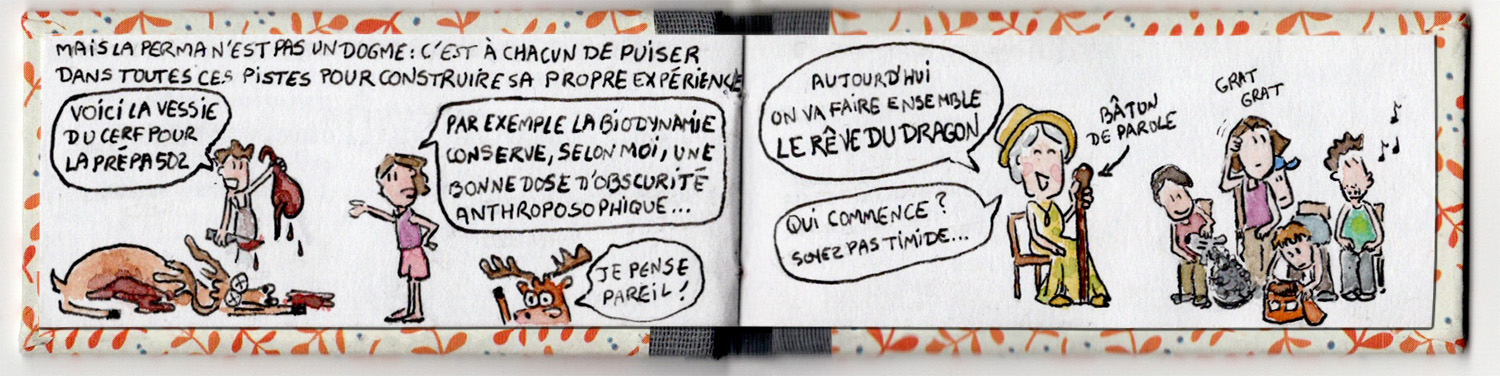 MAIS LA PERMA N'EST PAS UN DOGME : C'EST À CHACUN DE PUISER
DANS TOUTES CES PISTES POUR CONSTRUIRE SA PROPRE EXPÉRIENCE
VOICI LA VESSIE
DU CERF POUR
LA PRÉPA 502
PAR EXEMPLE LA BIODYNAMIE
CONSERVE, SELON MOI, UNE
BONNE DOSE D'OBSCURITÉ
ANTHROPOSOPHIQUE...
JE PENSE
PAREIL !
AUJOURD'HUI
ON VA FAIRE ENSEMBLE
LE RÊVE DU DRAGON
QUI COMMENCE ?
SOYEZ PAS TIMIDE...
BÂTON
DE PAROLE
GRAT
GRAT